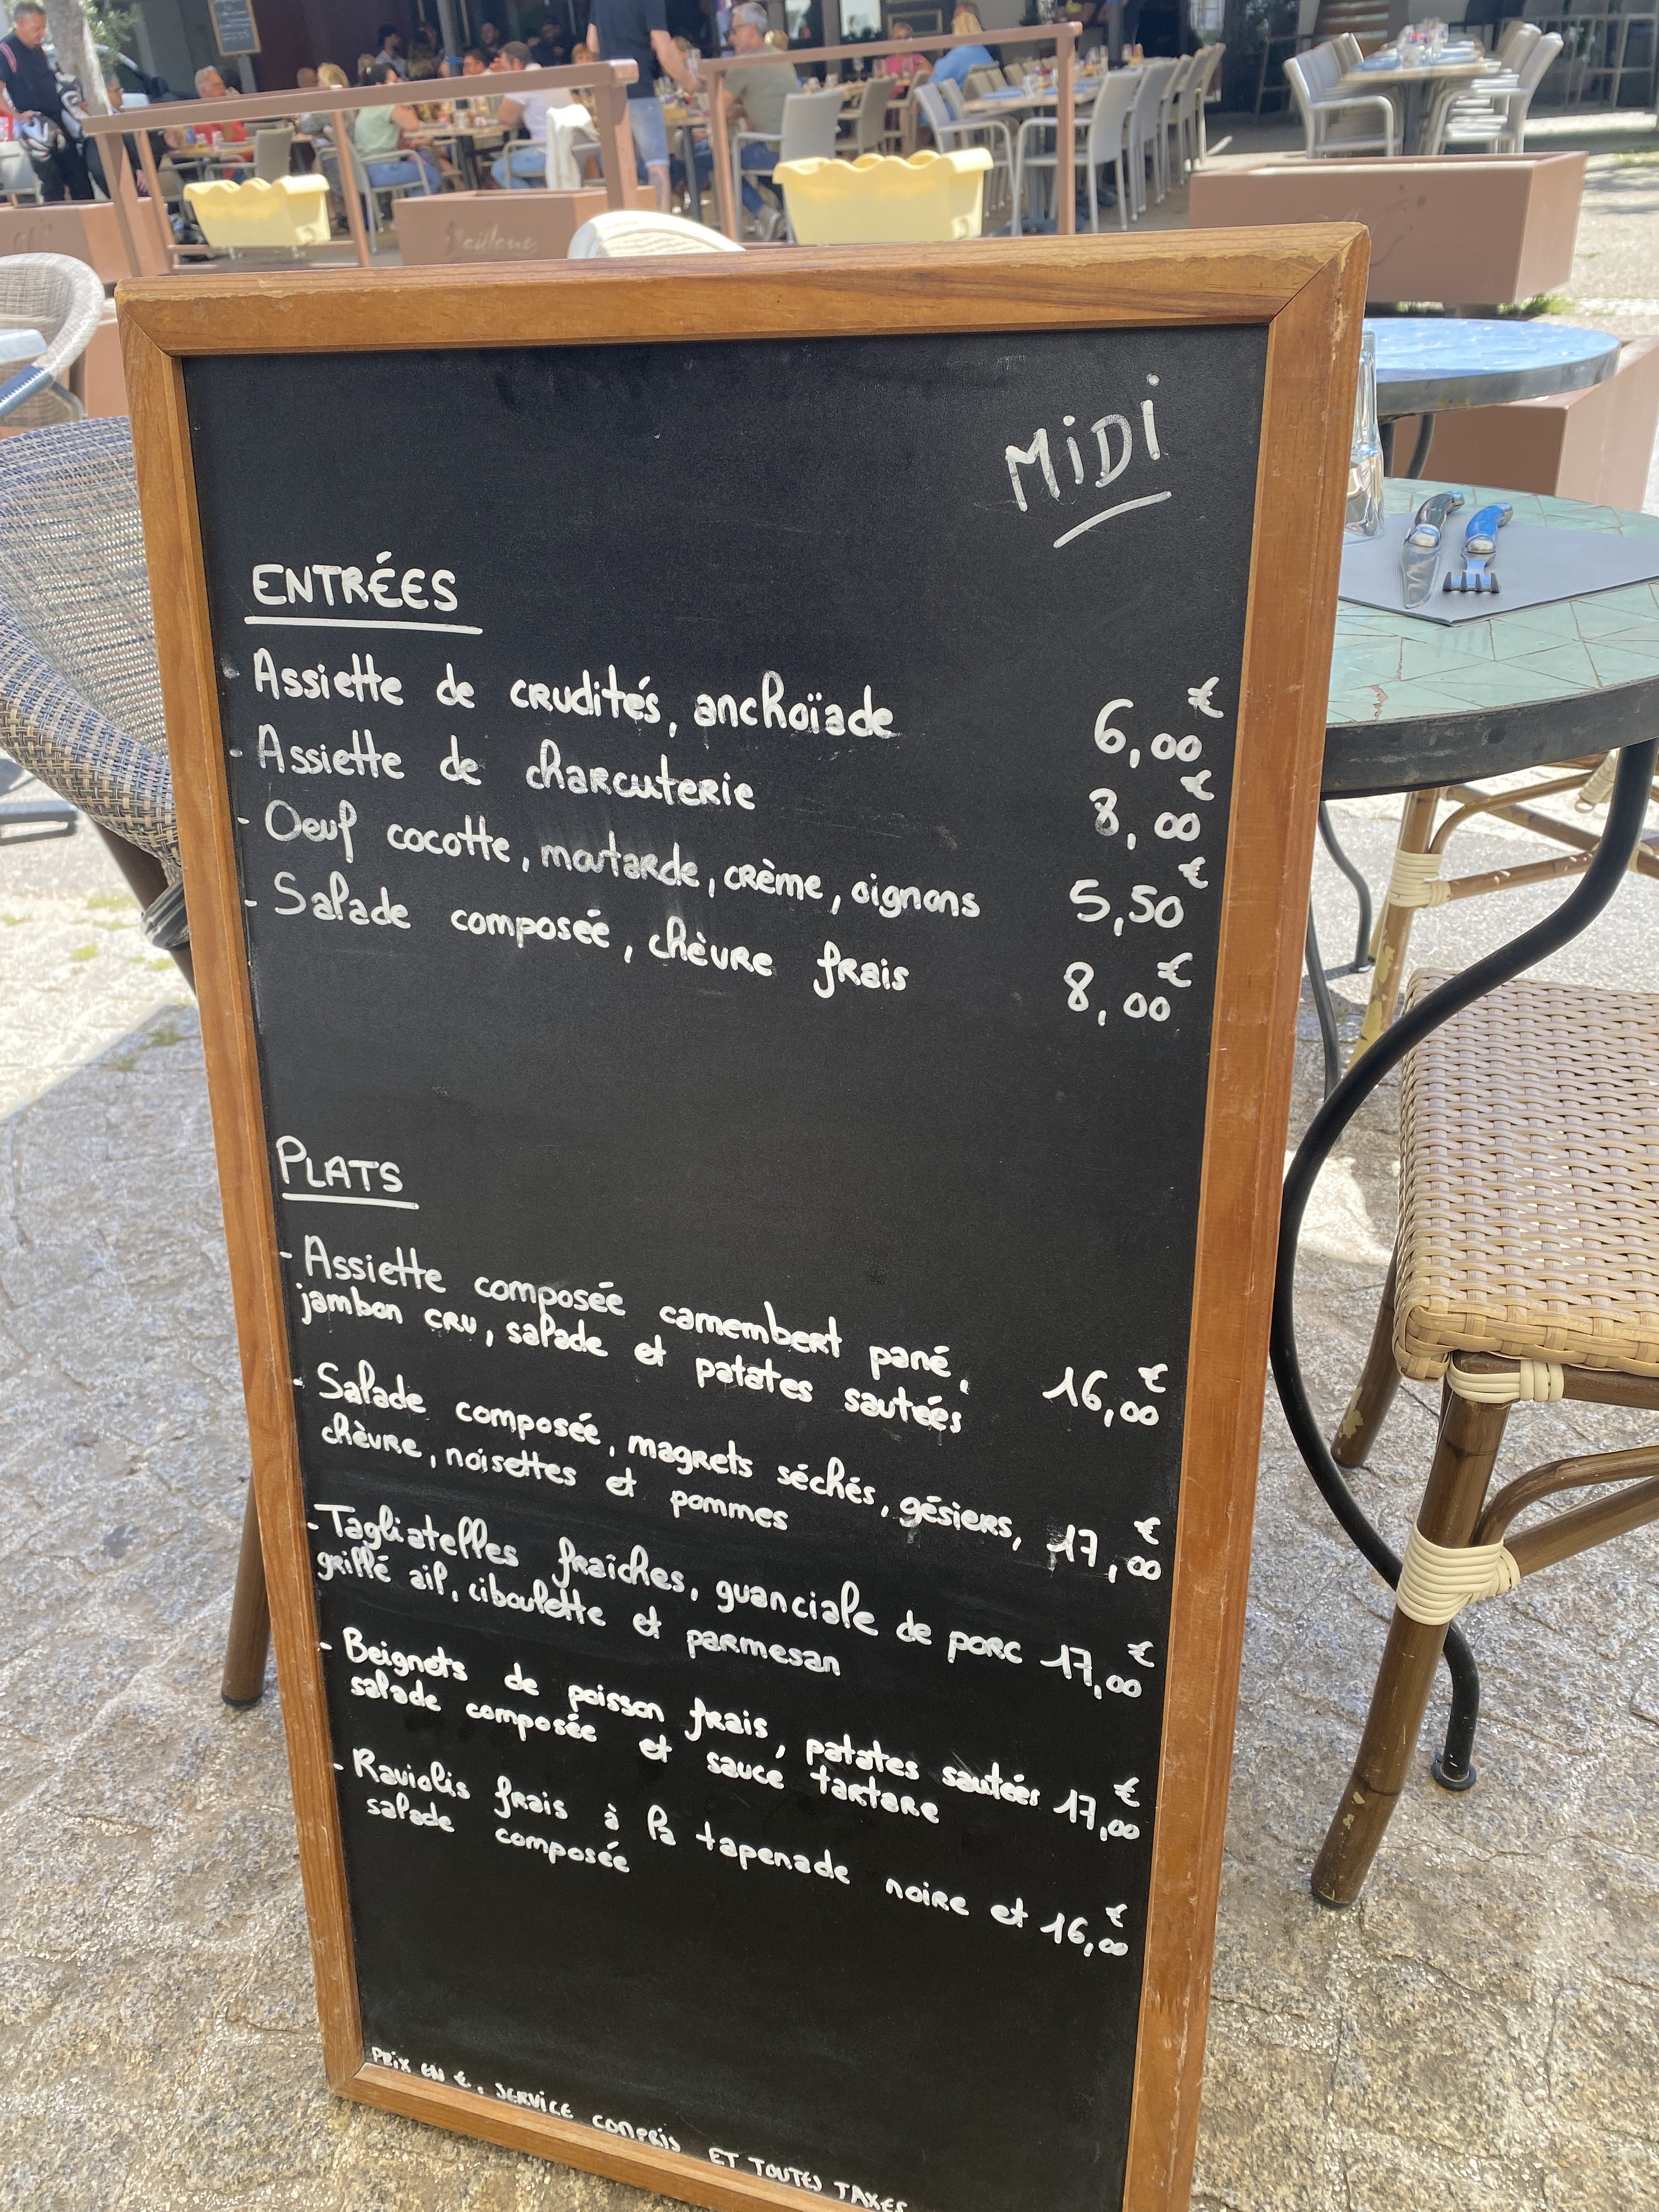 MiDi
ENTRÉES
- Assiette de crudités, anchoïade 6,00€
- Assiette de charcuterie 8,00€
- Oeuf cocotte, moutarde, crème, oignons 5,50€
- Salade composée, chèvre frais 8,00€
PLATS
- Assiette composée camembert pané,
jambon cru, salade et patates sautées 16,00€
- Salade composée, magrets séchés, gésiers, 17,00€
chèvre, noisettes et pommes
- Tagliatelles fraîches, guanciale de porc 17,00€
grillé ail, ciboulette et parmesan
- Beignets de poisson frais, patates sautées 17,00€
salade composée et sauce tartare
- Raviolis frais à la tapenade noire et 16,00€
salade composée
PRiX EN €, SERViCE COMPRiS ET TOUTES TAXES